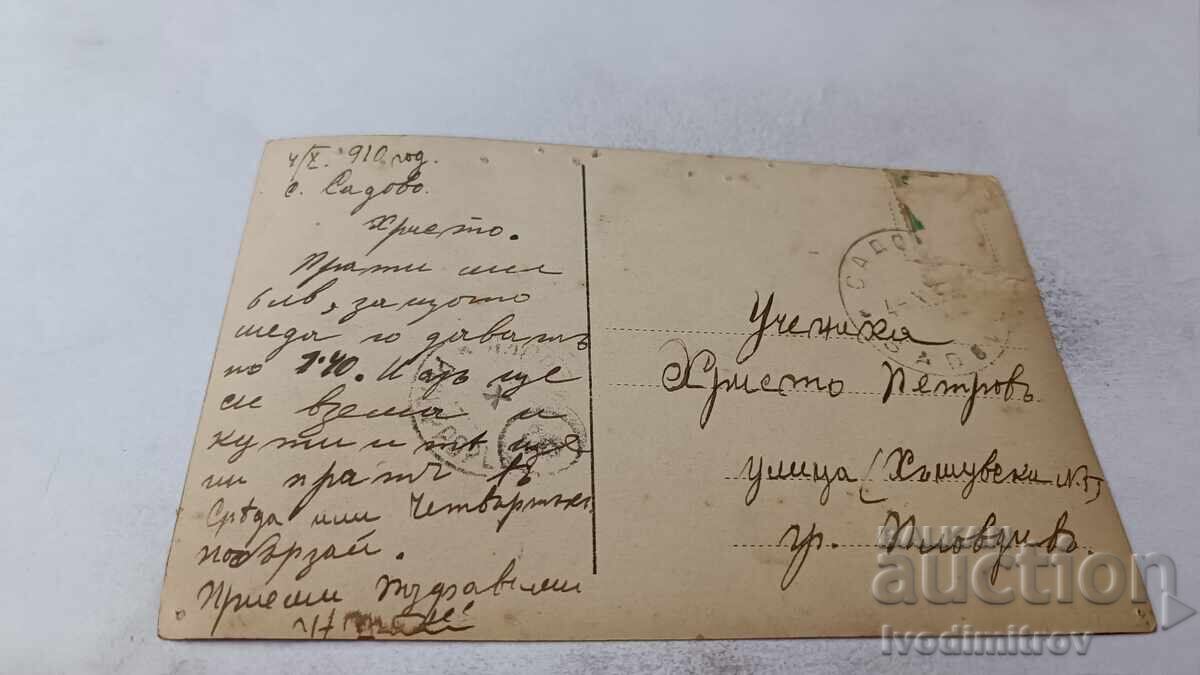 4/X. 910 год.
с. Садово.
Христо.
Прати ми
6 лв, защото
меда го даватъ
по 1·40. И азъ ще
си взема и
кутиитѣ ще
ни пратя въ
Срѣда или Четвъртъкъ
побързай.
Приеми поздравъ ми
Ученика
Христо Петровъ
улица (Хъшувска N.
гр. Пловдивъ.
САДОВО
auction
Ivodimitrov